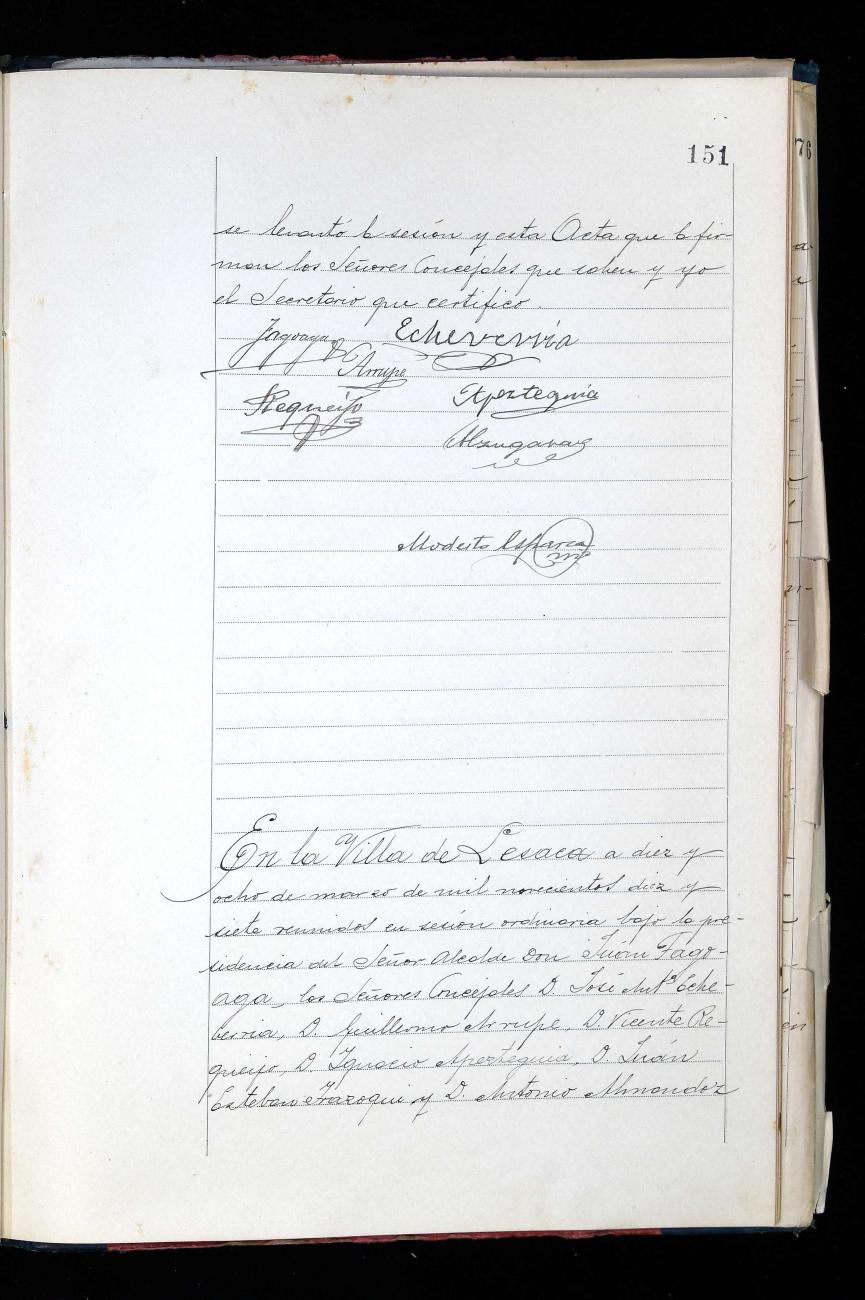 151
se levantó la sesión y esta Acta que la fir-
man los Señores Concejales que saben y yo
el Secretario que certifico.
Fagoaga Echeverria
Arrupe
Requeijo Apezteguia
Alzugaray
Modesto Esparza
En la Villa de Lesaca a diez y
ocho de marzo de mil novecientos diez y
siete reunidos en sesión ordinaria bajo la pre-
sidencia del Señor Alcalde Don Juán Fago-
aga, los Señores Concejales D. José Antº Eche-
verria, D. Guillermo Arrupe, D. Vicente Re-
queijo, D. Ignacio Apezteguia, D. Juán
Esteban Irazoqui y D. Antonio Almandoz
76